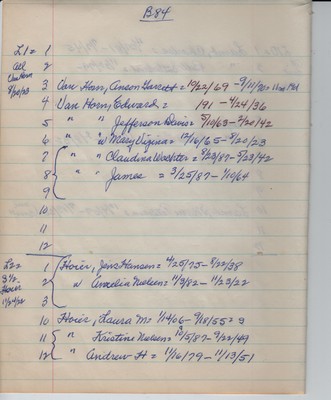 B84
L1= 1
All 2
Van Horn 3 Van Horn, Anson Garrett = 10/22/69 - 9/11/20
4 Van Horn, Edward = 191 - 4/24/36
5 " " Jefferson Davis = 5/10/63 - 2/20/42
6 " " w Mary Virginia = 12/16/65 - 8/20/23
7 " " Claudina Waechter = 8/23/87 - 9/23/42
8 " " James = 3/25/87 - 1/10/64
9
10
11
12
L2= 1 Hoier, Jens Hansen = 4/25/75 - 8/22/38
S 1/2 2 w Amelia Nielsen = 4/3/82 - 11/23/22
Hoier
11/24/22 3
10 Hoier, Laura M = 1/14/06 - 9/18/55 = 9
11 " Kristine Nielsen = 10/5/87 - 9/22/49
12 " Andrew H = 11/16/79 - 11/13/51